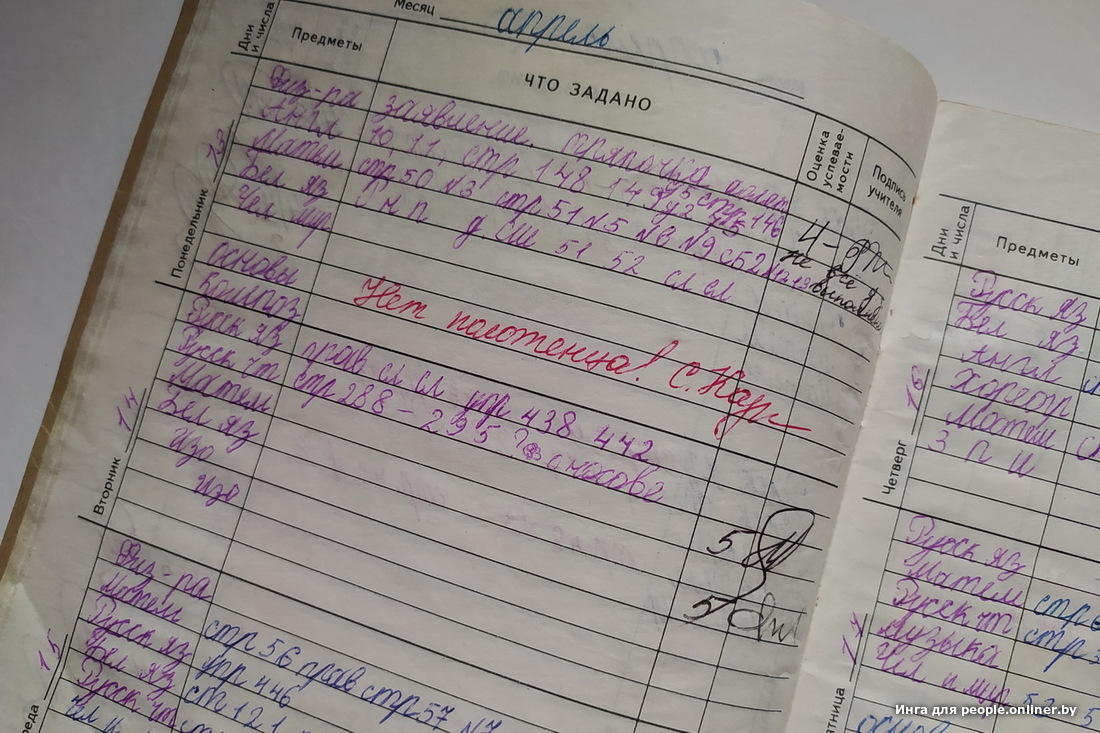 Месяц апрель
Дни и числа
Предметы
ЧТО ЗАДАНО
Оценка успевае-мости
Подпись учителя
Понедельник
13
Физ-ра заявление. тряпочка
Англ 10, 11, стр 148 149
Матем стр 50 №3 стр 51 №5 №8 №9
Бел яз
Чел мир
4-
не все
выполнено
Нет полотенца! С. Кау
Вторник
14
основы
Композ
Русск яз прав сл сл упр 438 442
Русск чт стр 288 - 295 о носове
Матем
Бел яз
изо
изо
5
5
15
Физ-ра
Матем стр 56 прав стр 57 №7
Русск яз упр 446
Бел яз ст 121
Русск чт
Дни и числа
Предметы
Четверг
16
Русск яз
Бел яз
Англ
Хореогр
Матем
З п и
17
Русск яз
Матем
Русск чт
Музыка
Чел и мир
Инга для people.onliner.by